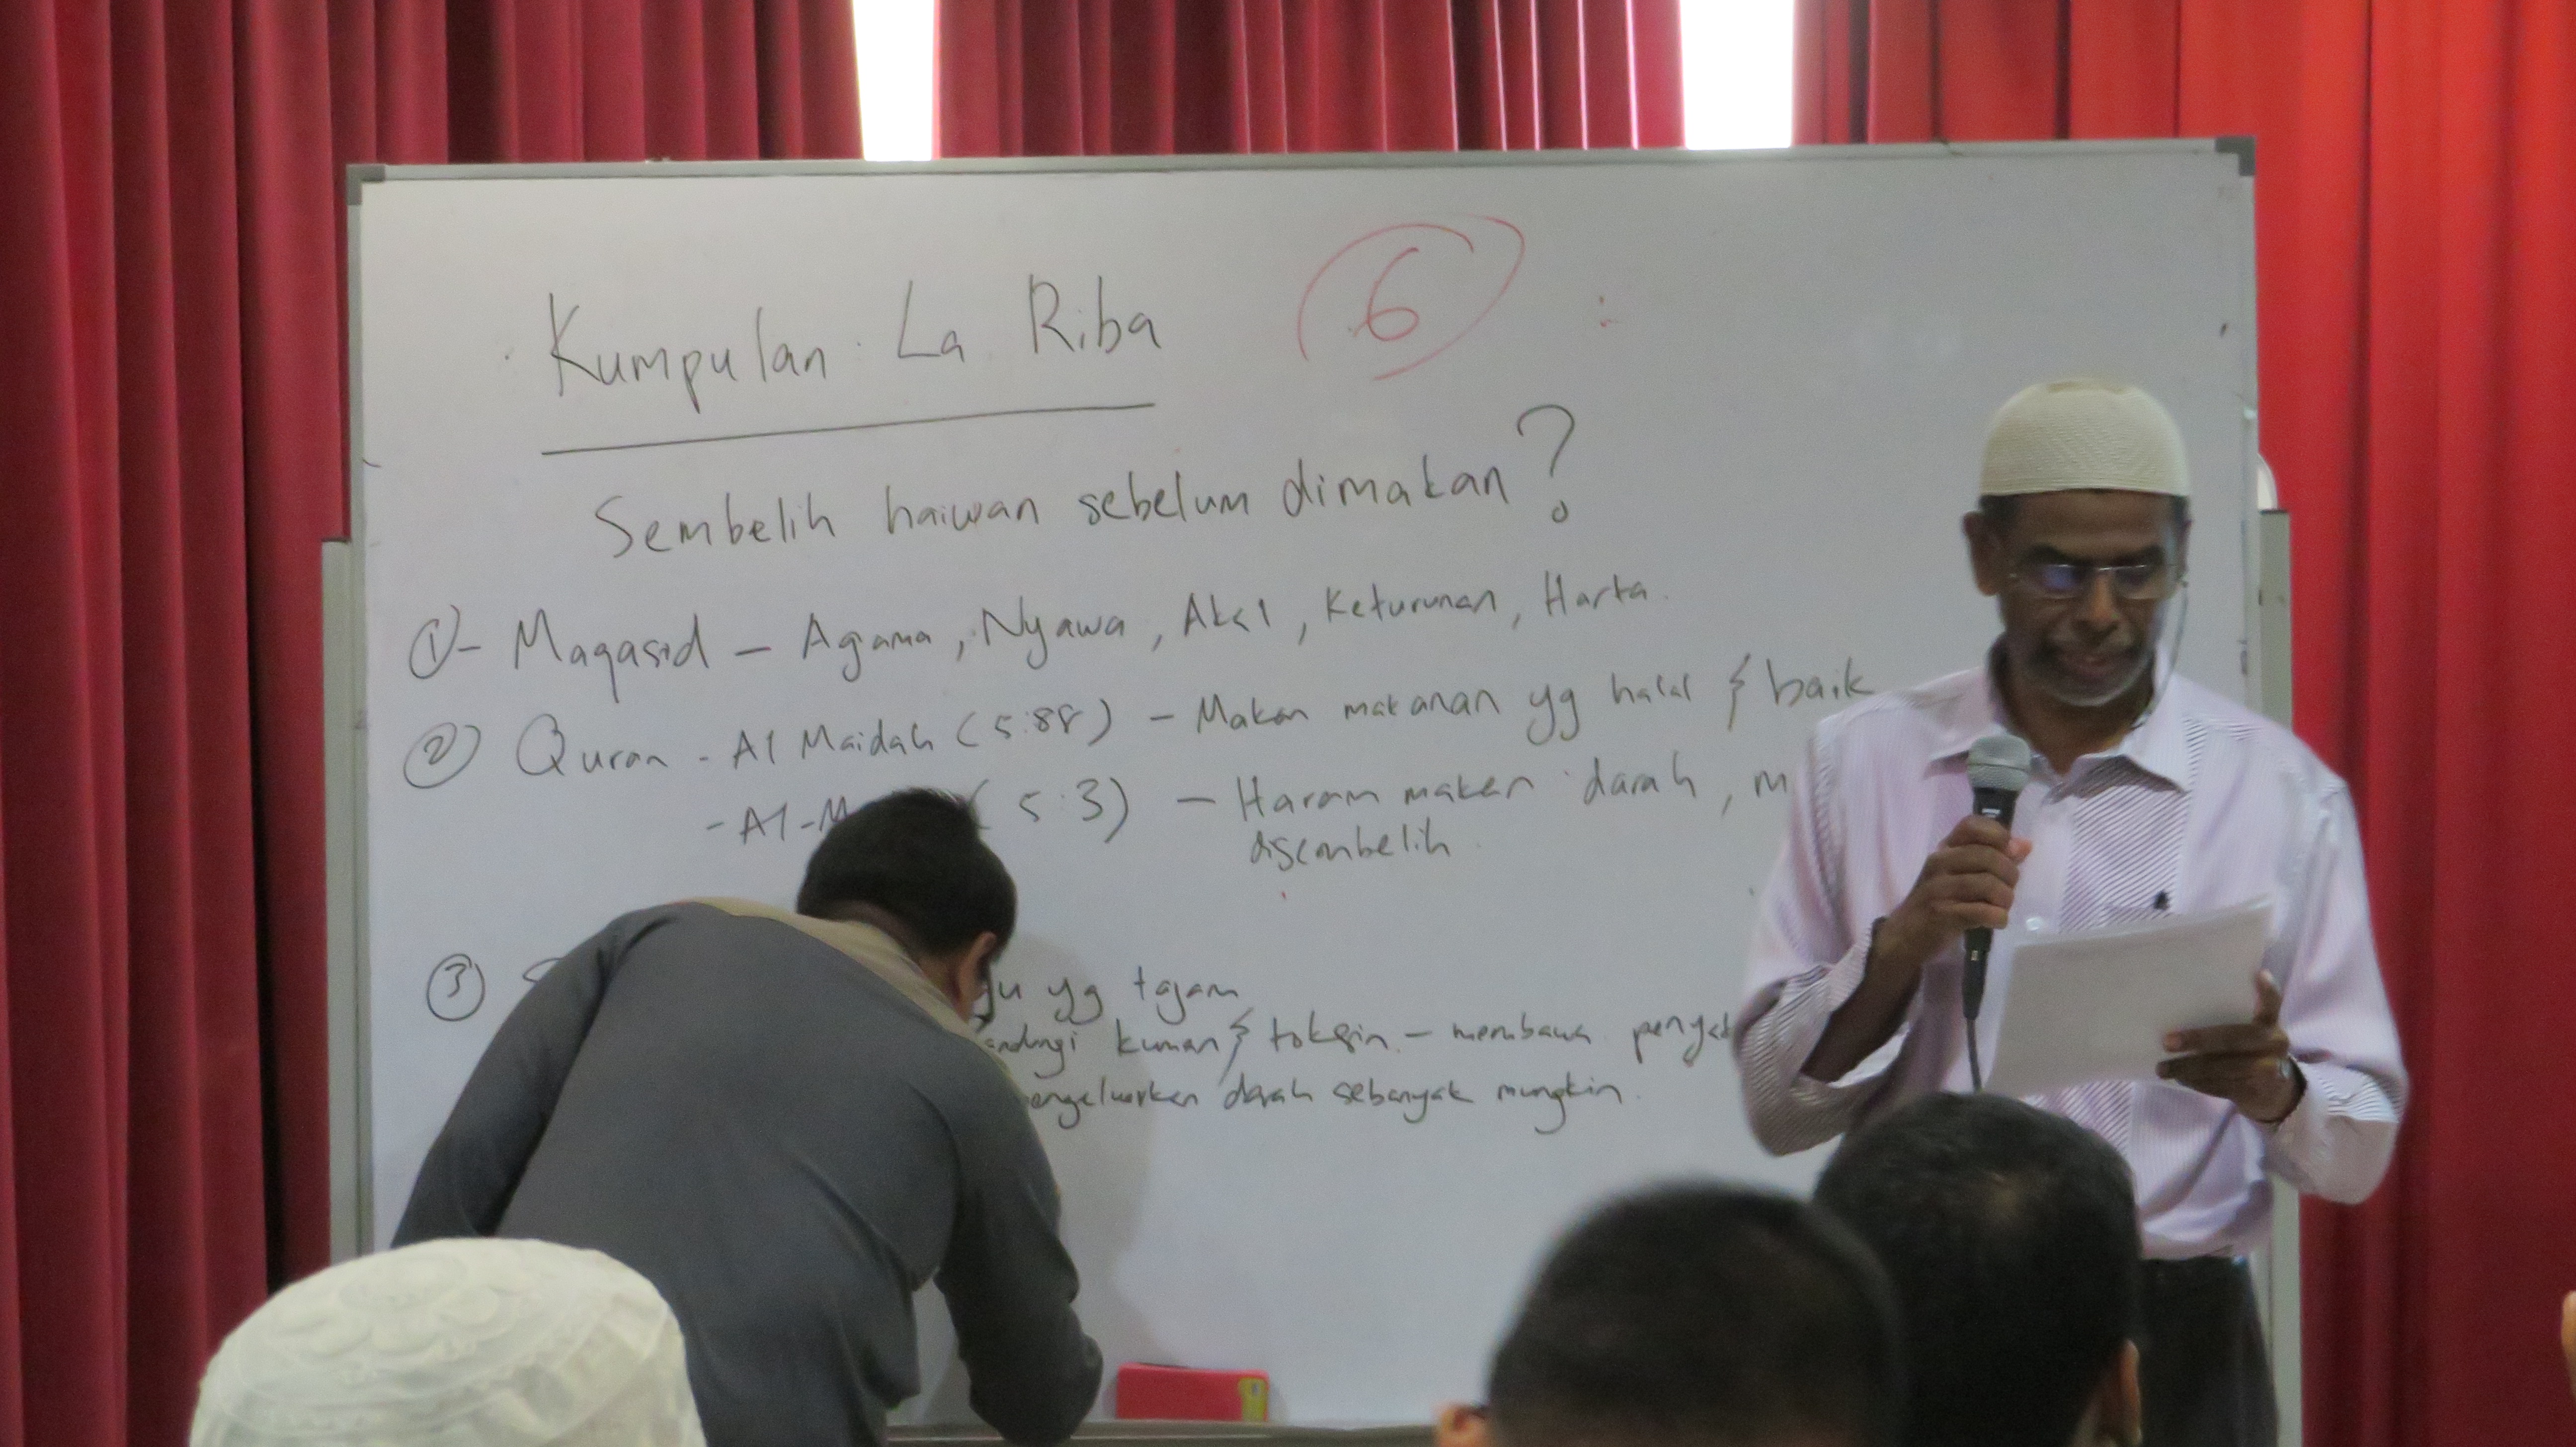 Kumpulan La Riba 6
Sembelih haiwan sebelum dimakan?
① - Maqasid - Agama, Nyawa, Akal, Keturunan, Harta.
② Quran - Al Maidah (5:88) - Makan makanan yg halal & baik
- Al-M (5:3) - Haram makan darah, m
disembelih
③ S yg tajam
kuman & toksin - membawa
darah sebanyak mungkin.